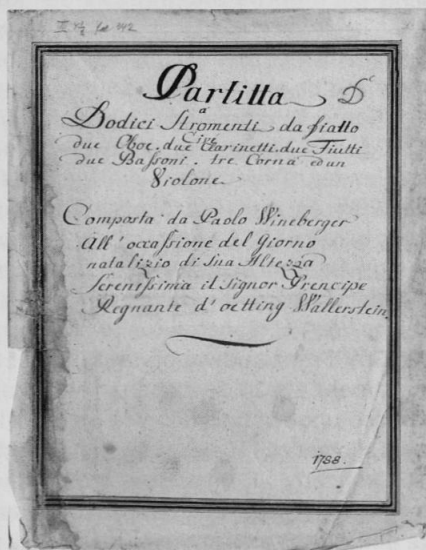 Partitta D
a
Dodici Stromenti da fiatto
Cive
due Oboe. due Clarinetti. due Fiutti
due Bassoni. tre Corna ed un
Violone
Composta da Paolo Wineberger
All' occassione del Giorno
natalizio di Sua Altezza
Serenissima il Signor Prencipe
Regnante d' oetting Wallerstein.
1788.